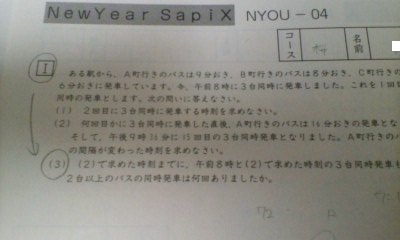 NewYear SapiX NYOU - 04
コース
名前
1 ある駅から、A町行きのバスは9分おき、B町行きのバスは8分おき、C町行きの
6分おきに発車しています。今、午前8時に3台同時に発車しました。これを1回目
同時の発車とします。次の問いに答えなさい。
(1) 2回目に3台同時に発車する時刻を求めなさい。
(2) 何回目かに3台同時に発車した直後、A町行きのバスは14分おきの発車とな
そして、午後9時36分に15回目の3台同時発車となりました。A町行きのバス
の間隔が変わった時刻を求めなさい。
(3) (2)で求めた時刻までに、午前8時と(2)で求めた時刻の3台同時発車も
2台以上のバスの同時発車は何回ありましたか。
72